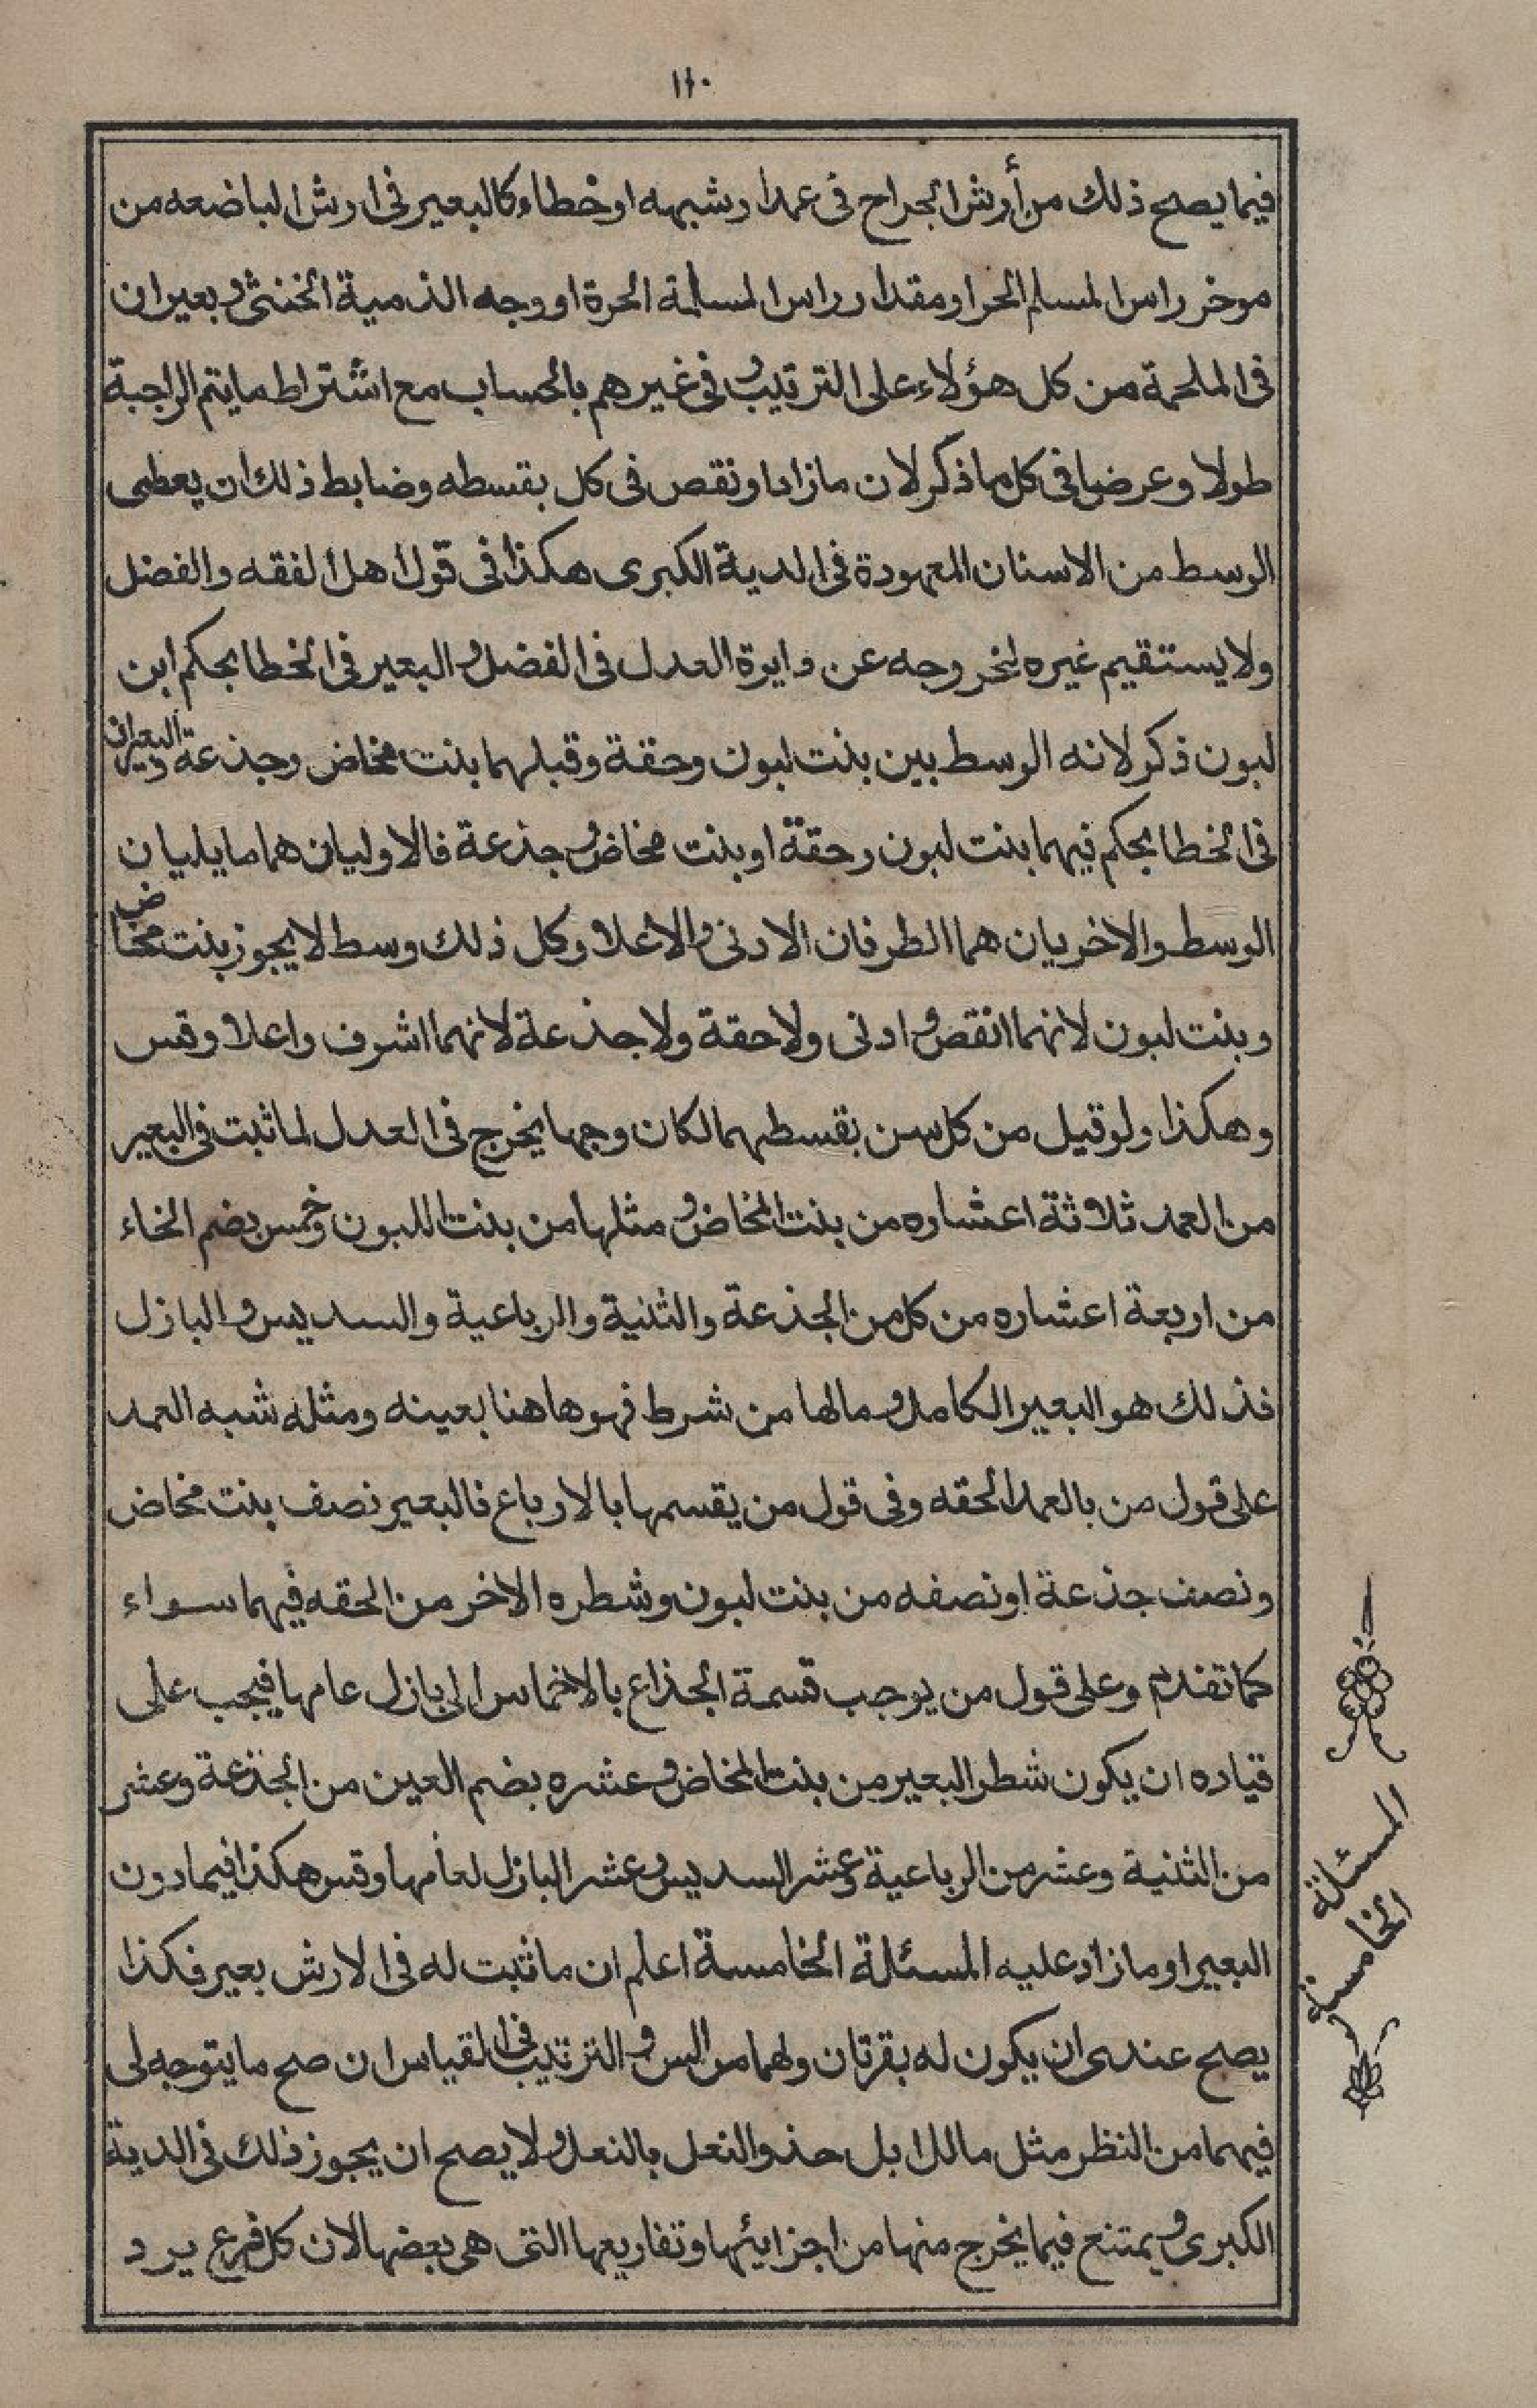 ١١٠
فيما يصح ذلك من أرش الجراح فى عمد او شبهه او خطا وكالبعير فى ارش الباضعه من
موخر راس المسلم الحر او مقدار راس المسلمة الحرة او وجه الذمية الخنثى وبعيران
فى الملحمة من كل هؤلاء على الترتيب وفى غيرهم بالحساب مع اشتراط ما يتم الراجبة
طولا وعرضا فى كل ما ذكر لان ما زاد او نقص فى كل بقسطه وضابط ذلك ان يعطى
الوسط من الاسنان المعهودة فى الدية الكبرى هكذا فى قول اهل الفقه والفضل
ولا يستقيم غيره لخروجه عن دايرة العدل فى الفضل والبعير فى الخطا بحكم ابن
لبون ذكر لانه الوسط بين بنت لبون وحقة وقبلهما بنت مخاض وجذعة والبعيران
فى الخطا بحكم فيهما بنت لبون وحقة او بنت مخاض وجذعة فالاوليان هما ما يليان
الوسط والاخريان هما الطرفان الادنى والاعلا وكل ذلك وسط لا يجوز بنت مخاض
وبنت لبون لانهما انقص وادنى ولا حقة ولا جذعة لانهما اشرف واعلا وقس
وهكذا ولو قيل من كل سن بقسطهما لكان وجها يخرج فى العدل لما ثبت فى البعير
من العمد ثلاثة اعشاره من بنت المخاض ومثلها من بنت اللبون وخمس بضم الخاء
من اربعة اعشاره من كل من الجذعة والثنية والرباعية والسديس والبازل
فذلك هو البعير الكامل وما لها من شرط فهو هاهنا بعينه ومثله شبه العمد
على قول من بالعمد الحقه وفى قول من يقسمها بالارباع فالبعير نصف بنت مخاض
ونصف جذعة او نصفه من بنت لبون وشطره الاخر من الحقه فيهما سواء
كما تقدم وعلى قول من يوجب قسمة الجذاع بالاخماس الى بازل عامها فيجب على
قياده ان يكون شطر البعير من بنت المخاض وعشره بضم العين من الجذعة وعشر
من الثنية وعشر من الرباعية وعشر السديس وعشر البازل لعامها وقس هكذا فيما دون
البعير او ما زاد عليه المسئلة الخامسة اعلم ان ما ثبت له فى الارش بعير فكذا
يصح عندى ان يكون له بقرتان ولهما من السن والترتيب فى القياس ان صح ما يتوجه لى
فيهما من النظر مثل ما للابل حذو النعل بالنعل ولا يصح ان يجوز ذلك فى الدية
الكبرى ويمتنع فيما يخرج منها من اجزايئها وتفاريعها التى هى بعضها لان كل فرع يرد
المسئلة
الخامسة